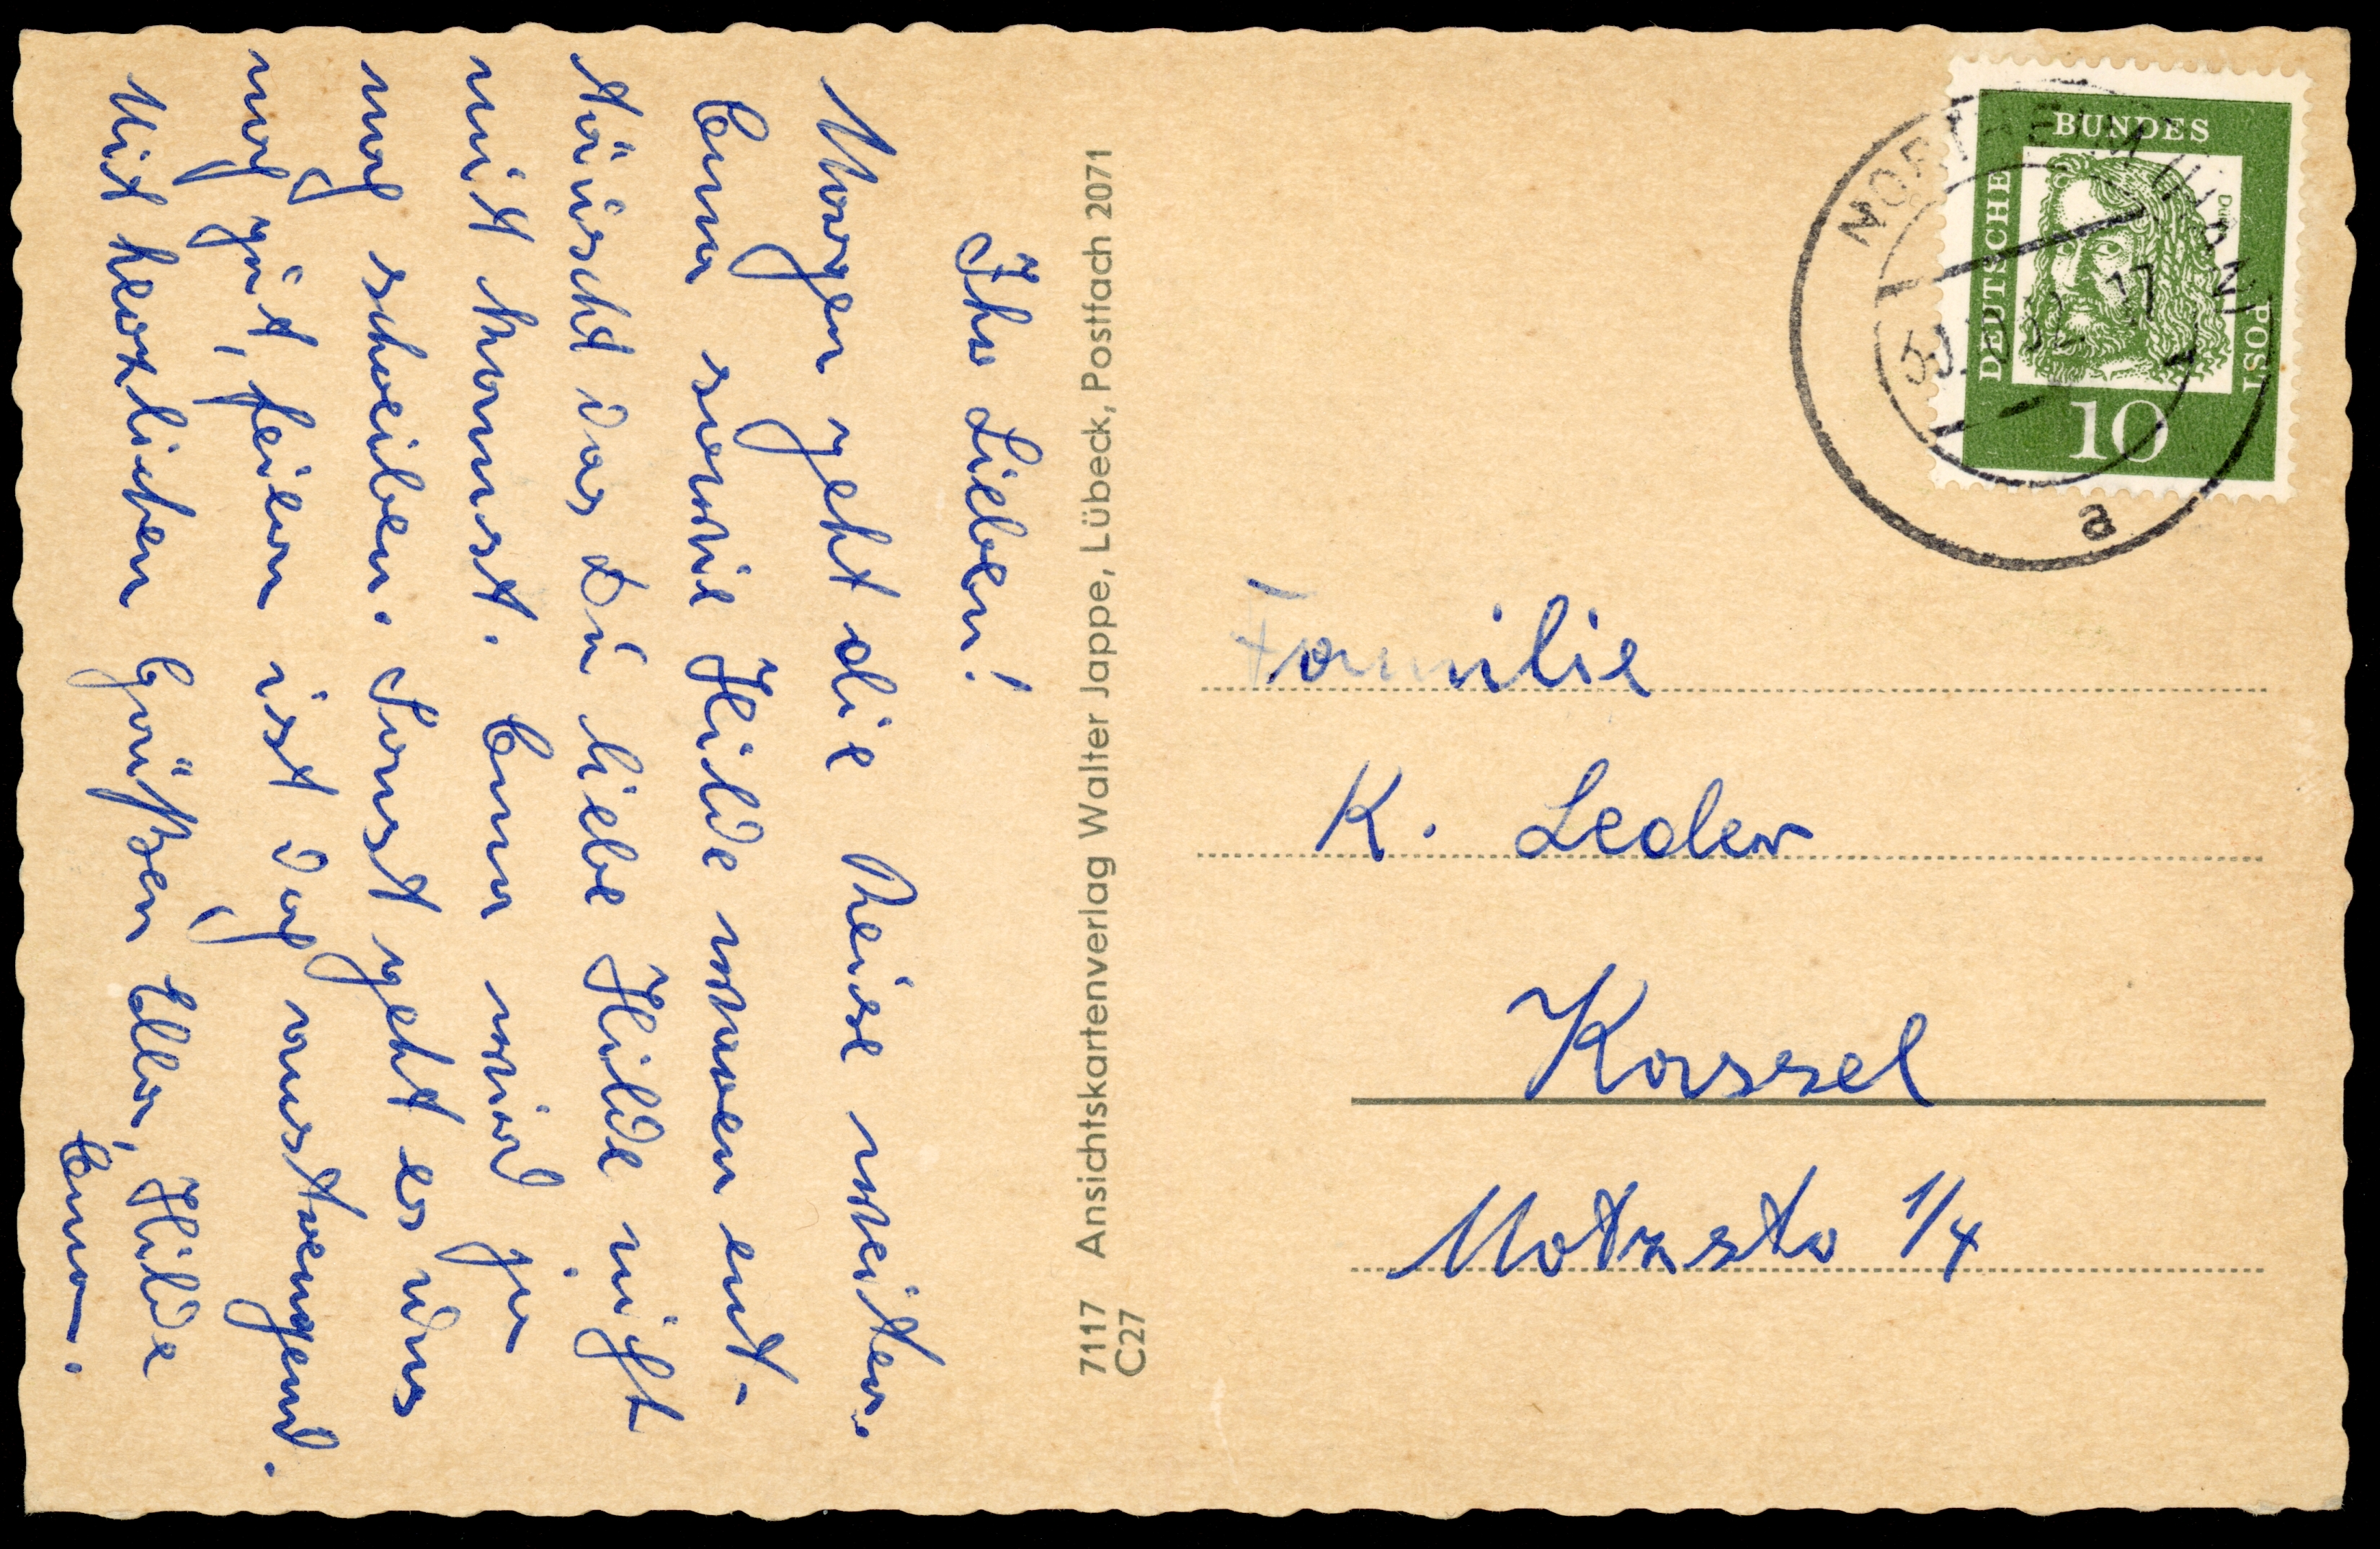 Ihr Lieben!
Morgen geht die Reise weiter.
Erna sowie Hilde waren ent-
täuscht das Du liebe Hilde nicht
mit kommst. Erna wird ja
noch schreiben. Sonst geht es uns
noch gut, feiern ist doch anstrengend.
Mit herzlichen Grüßen Ella, Hilde
Erna.
7117 Ansichtskartenverlag Walter Jappe, Lübeck, Postfach 2071
C27
DEUTSCHE
BUNDES
POST
10
NORTHEIM (HAN)
17
a
Familie
K. Leder
Kassel
Motzstr 1/4